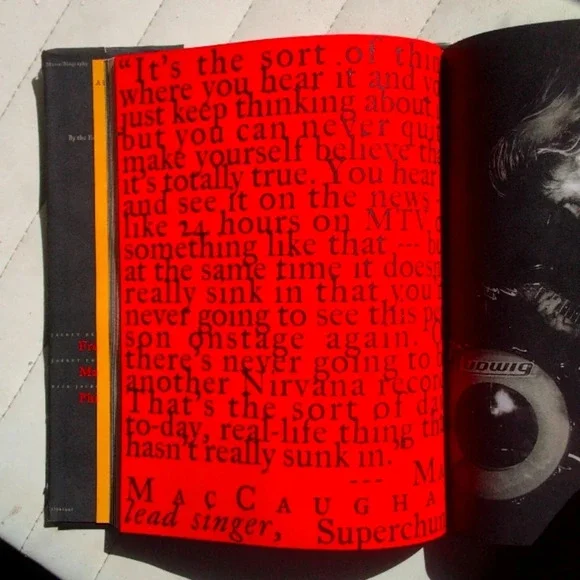 Music/Biography
By the
"It's the sort of thin
where you hear it and yo
just keep thinking about
but you can never qui
make yourself believe tha
it's totally true. You hear
and see it on the news
like 24 hours on MTV o
something like that --- bu
at the same time it doesn
really sink in that you'r
never going to see this pe
son onstage again.
there's never going to b
another Nirvana recor
That's the sort of da
to-day, real-life thing tha
hasn't really sunk in."
--- Ma
MacCaugha
lead singer, Superchun
udwig